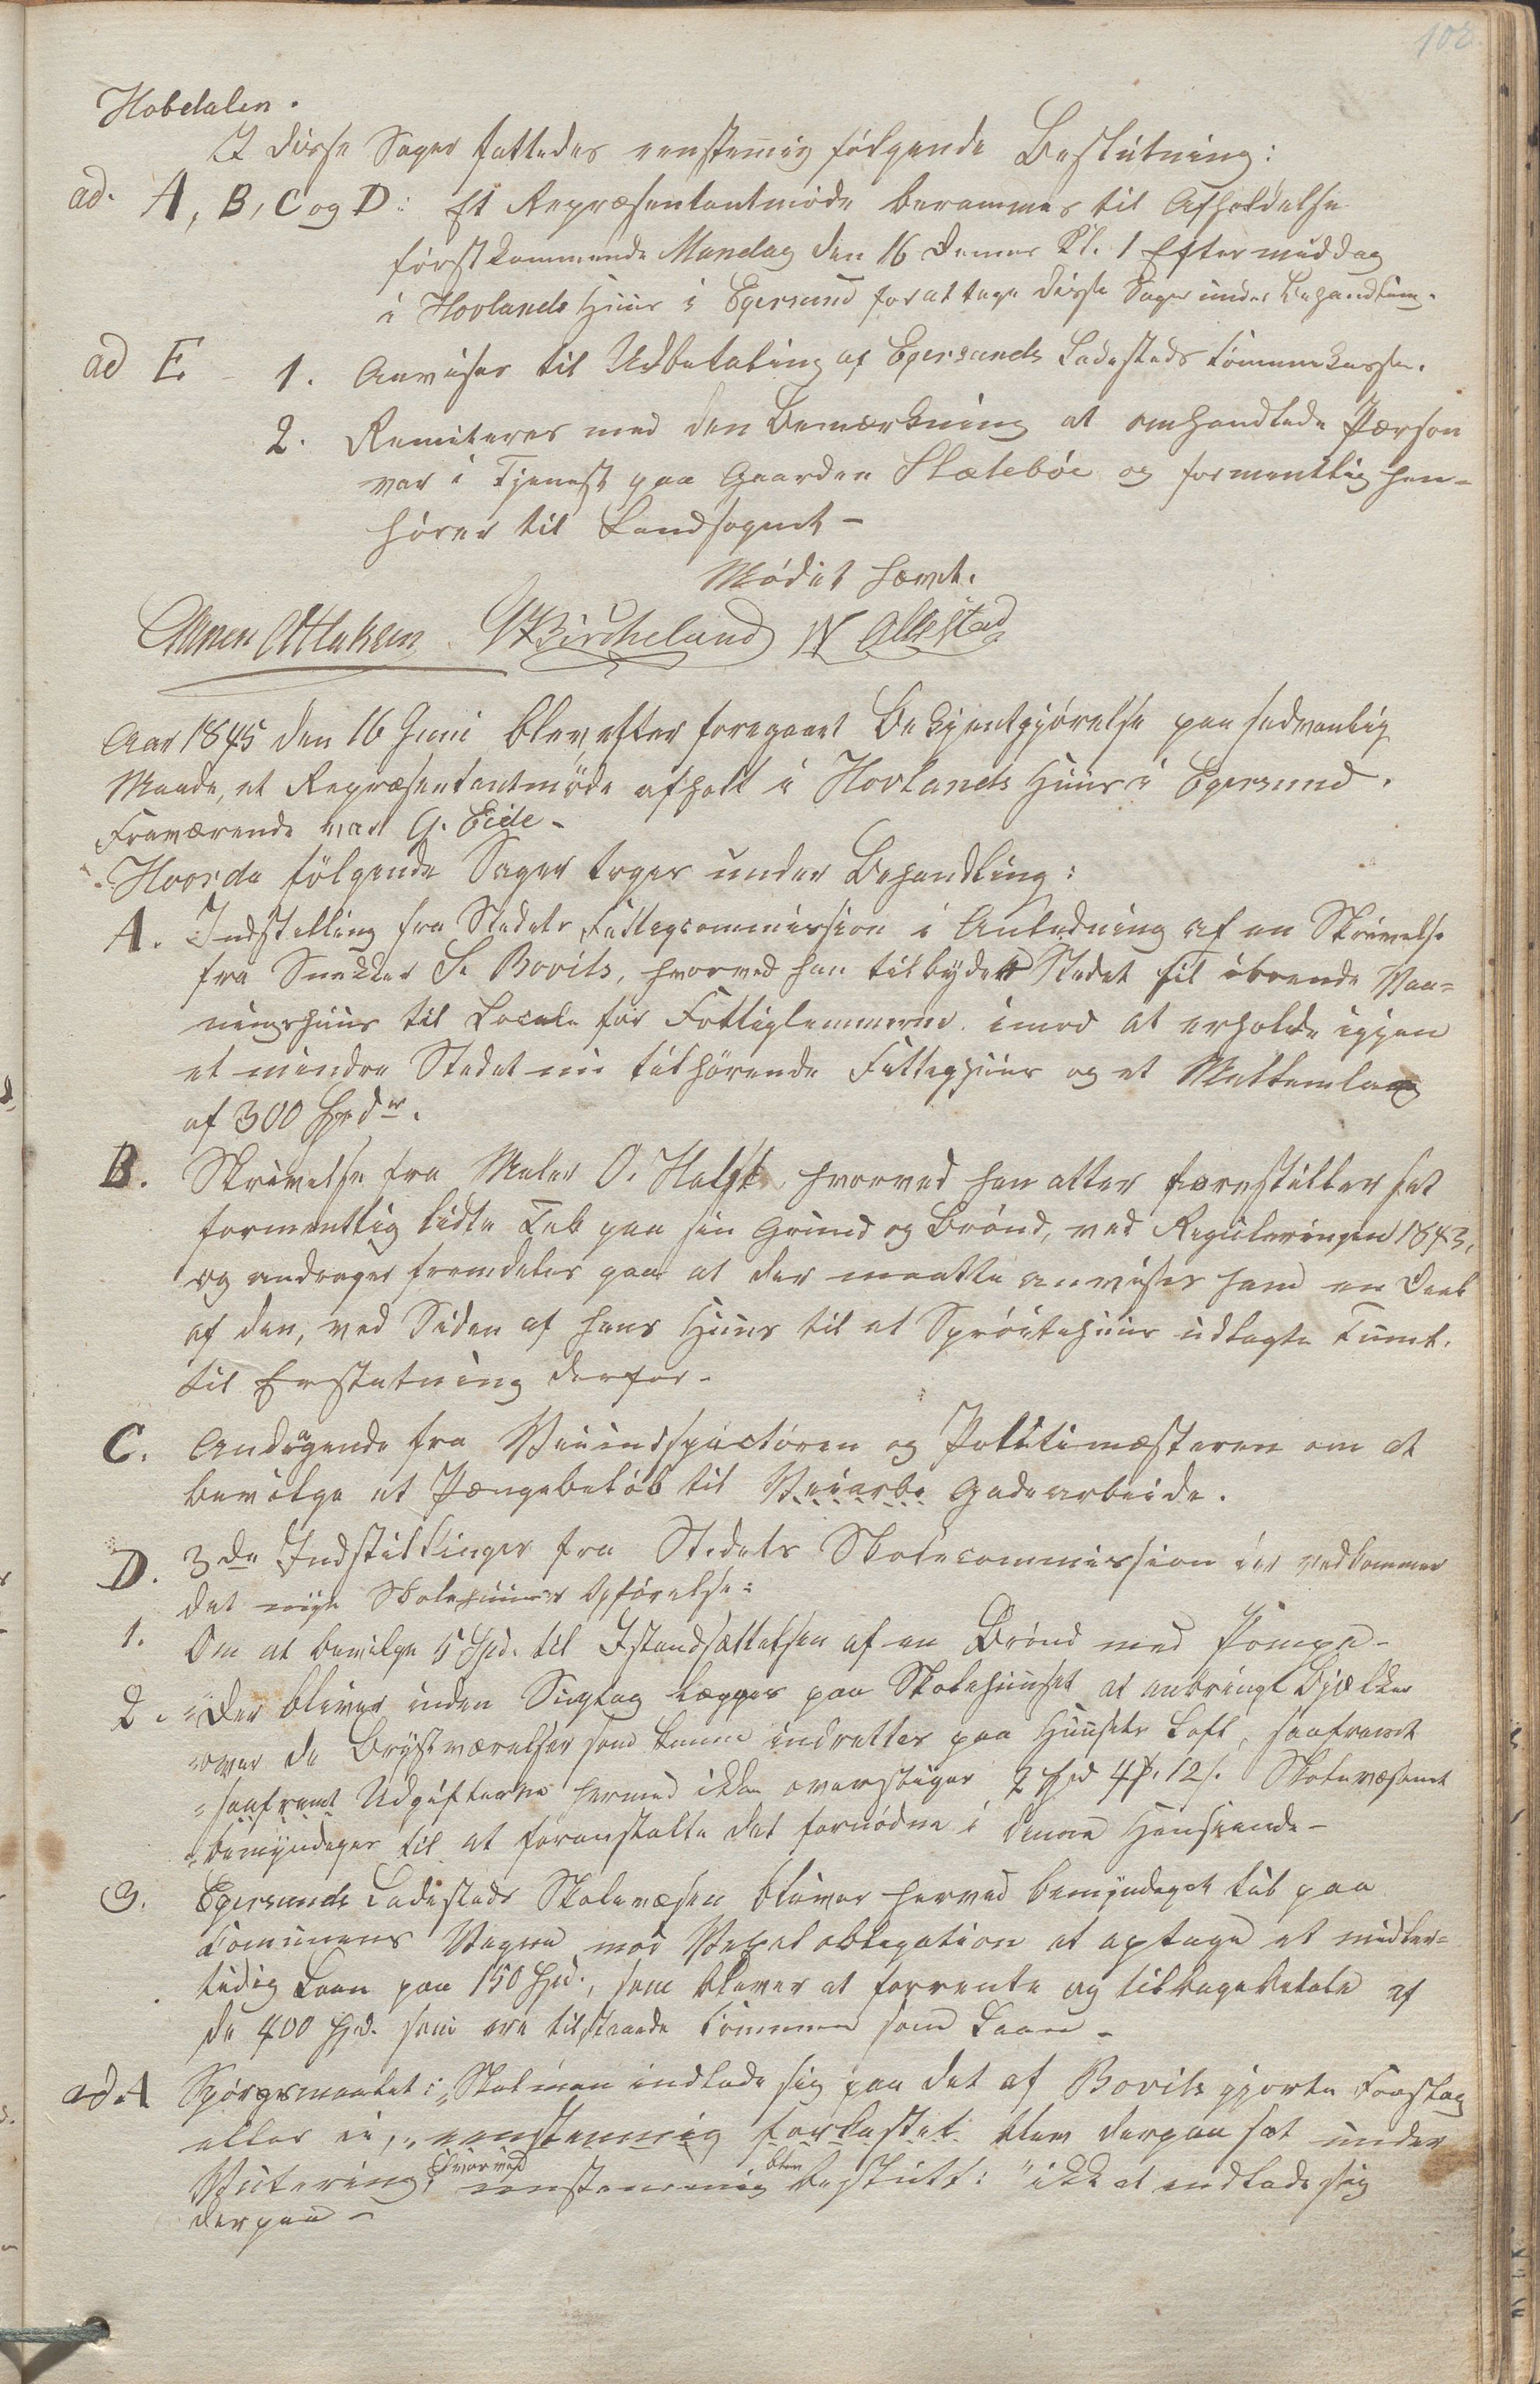 108
Hobdalen.
I disse Sager fattedes eenstemig følgende Beslutning:
ad. A, B, C og D: Et Repræsentantmøde berammes til Afholdelse
førstkommende Mandag den 16 dennes Kl. 1 Eftermiddag
i Hovlands Huus i Egersund for at tage disse Sager under Behandling.
ad E - 1. Anvises til Udbetaling af Egersunds Ladesteds Communekasse.
2. Remiteres med den Bemærkning at omhandlede Person
var i Tjeneste paa Gaarden Slætebøe og formentlig hen-
hører til Landsognet -
Mødet hævet.
Ottesen GBircheland N Ollestad
Aar 1845 den 16 Juni blev, efter foregaaet Bekjentgjørelse paa sedvanlig
Maade, et Repræsentantmøde afholt i Hovlands Huus i Egersund.
Fraværende var G. Eide -
Hvor da følgende Sager toges under Behandling:
A. Indstilling fra Stedets Fattigcommission i Anledning af en Skrivelse
fra Snekker S. Bovits, hvorved han tilbyder Stedet sit iboende Vaa-
ningshuus til Locale for Fattiglemmerne imod at erholde igjen
et mindre Stedet nu tilhørende Fattighuus og et Mellemlag
af 300 Spdr.
B. Skrivelse fra Maler O. Halst hvorved han atter forestiller sit
formentlig lidte Tab paa sin Grund og Brønd, ved Reguleringen 1843,
og andrager fremdeles paa at der maatte anvises ham en Deel
af den, ved Siden af hans Huus til et Sprøitehuus udlagte Tomt,
til Erstatning derfor -
C. Andragende fra Veiinspectøren og Politimesteren om at
bevilge et Pengebeløb til Veiarbe Gadearbeide.
D. 3de Indstillinger fra Stedets Skolecommission der vedkommer
det nye Skolehuuses Opførelse:
1. Om at bevilge 5 Spd. til Istandsættelsen af en Brønd med Pompe -
2. "Der bliver inden Suptag lægges paa Skolehuuset at anbringe Bjælker
"over de Brystværelser som kunne indrettes paa Huusets Loft, saafremt
"saafremt Udgifterne hermed ikke overstiger 2 Spd 4 12 s. Skolevæsenet
"bemyndiges til at foranstalte det fornødne i denne Henseende -
3. Egersunds Ladesteds Skolevæsen bliver herved bemyndiget til paa
Communens Vegne mod Vexelobligation at optage et midler-
tidig Laan paa 150 Spd., som bliver at forrente og tilbagebetale af
de 400 Spd. som ere tilstaaede Communen som Laan -
ad A Spørgsmaalet: "Skal man indlade sig paa det af Bovits gjorte Forslag
eller ei," eenstemmig forkastet blev derpaa sat under
Votering, hvorved eenstemmig blev besluttet: "ikke at indlade sig
derpaa -